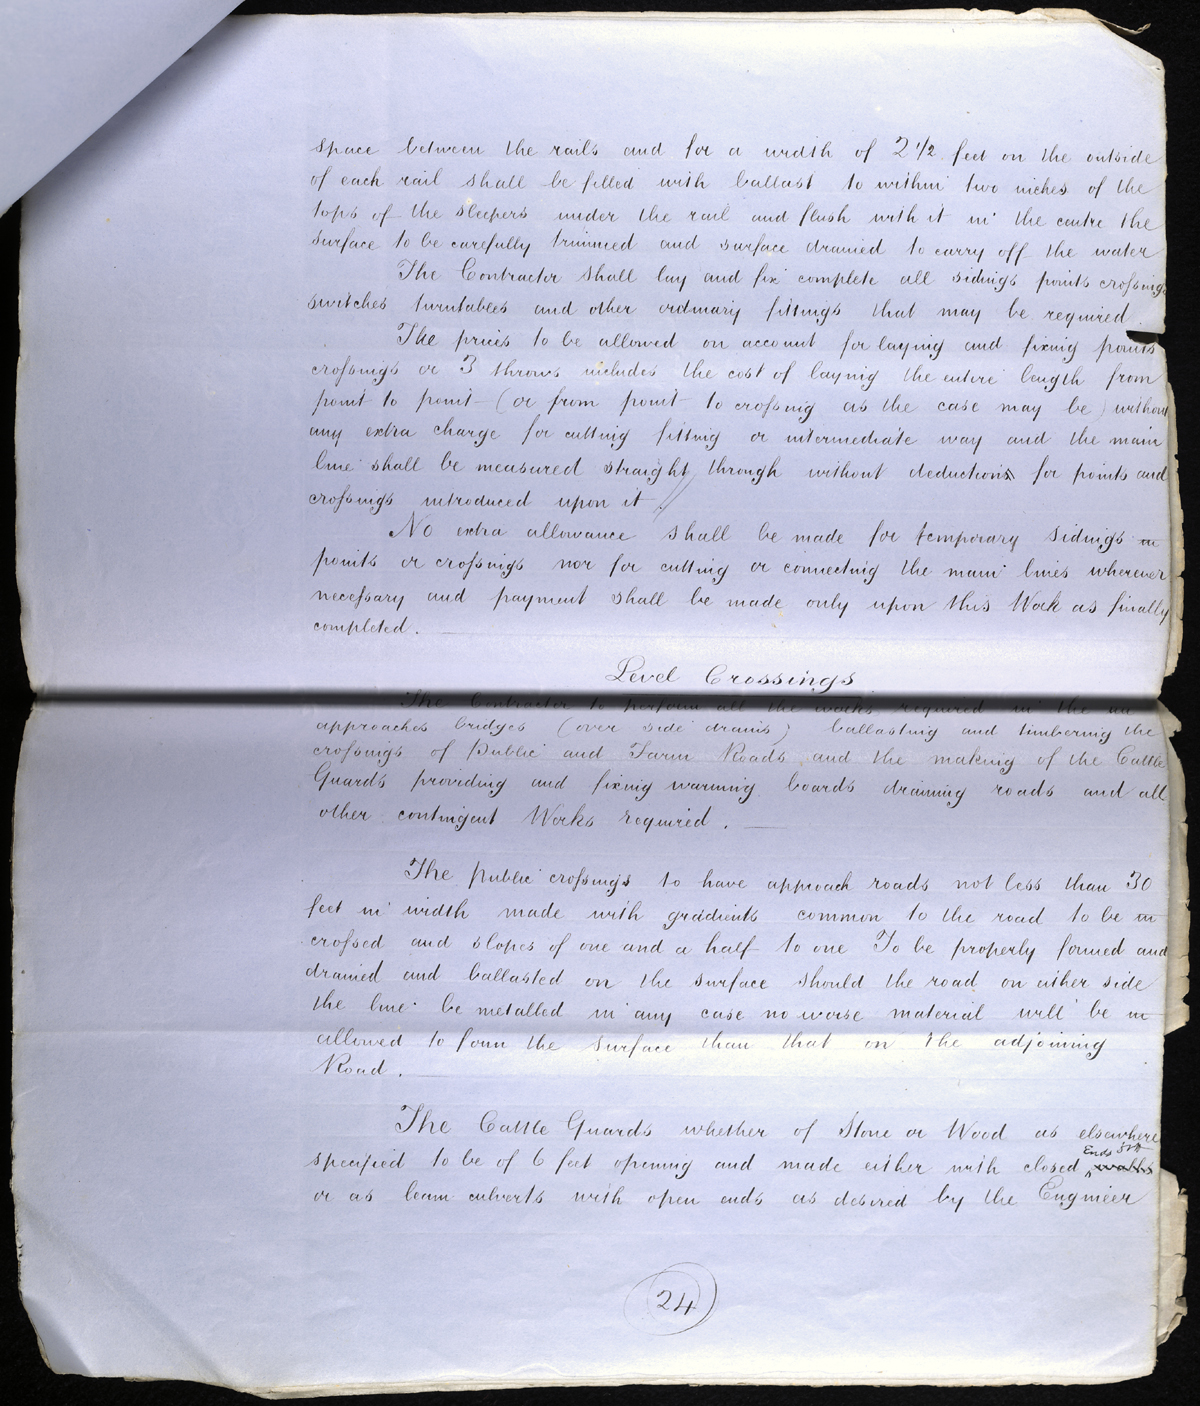 space between the rails and for a width of 2 1/2 feet on the outside
of each rail shall be filled with ballast to within two inches of the
tops of the sleepers under the rail and flush with it in the centre the
surface to be carefully trimmed and surface drained to carry off the water
The Contractor shall lay and fix complete all sidings points crossings
switches turntables and other ordinary fittings that may be required.
The prices to be allowed on account for laying and fixing points
crossings or 3 throws includes the cost of laying the entire length from
point to point (or from point to crossing as the case may be) without
any extra charge for cutting fitting or intermediate way and the main
line shall be measured straight through without deductions for points and
crossings introduced upon it.
No extra allowance shall be made for temporary sidings
points or crossings nor for cutting or connecting the main lines wherever
necessary and payment shall be made only upon this Work as finally
completed.
Level Crossings
The Contractor to perform all the works required in the
approaches bridges (over side drains) ballasting and timbering the
crossings of Public and Farm Roads and the making of the Cattle
Guards providing and fixing warning boards draining roads and all
other contingent Works required.
The public crossings to have approach roads not less than 30
feet in width made with gradients common to the road to be
crossed and slopes of one and a half to one To be properly formed and
drained and ballasted on the surface should the road on either side
the line be metalled in any case no worse material will be
allowed to form the surface than that on the adjoining
Road.
The Cattle Guards whether of Stone or Wood as elsewhere
specified to be of 6 feet opening and made either with closed Ends walls
or as beam culverts with open ends as desired by the Engineer
24